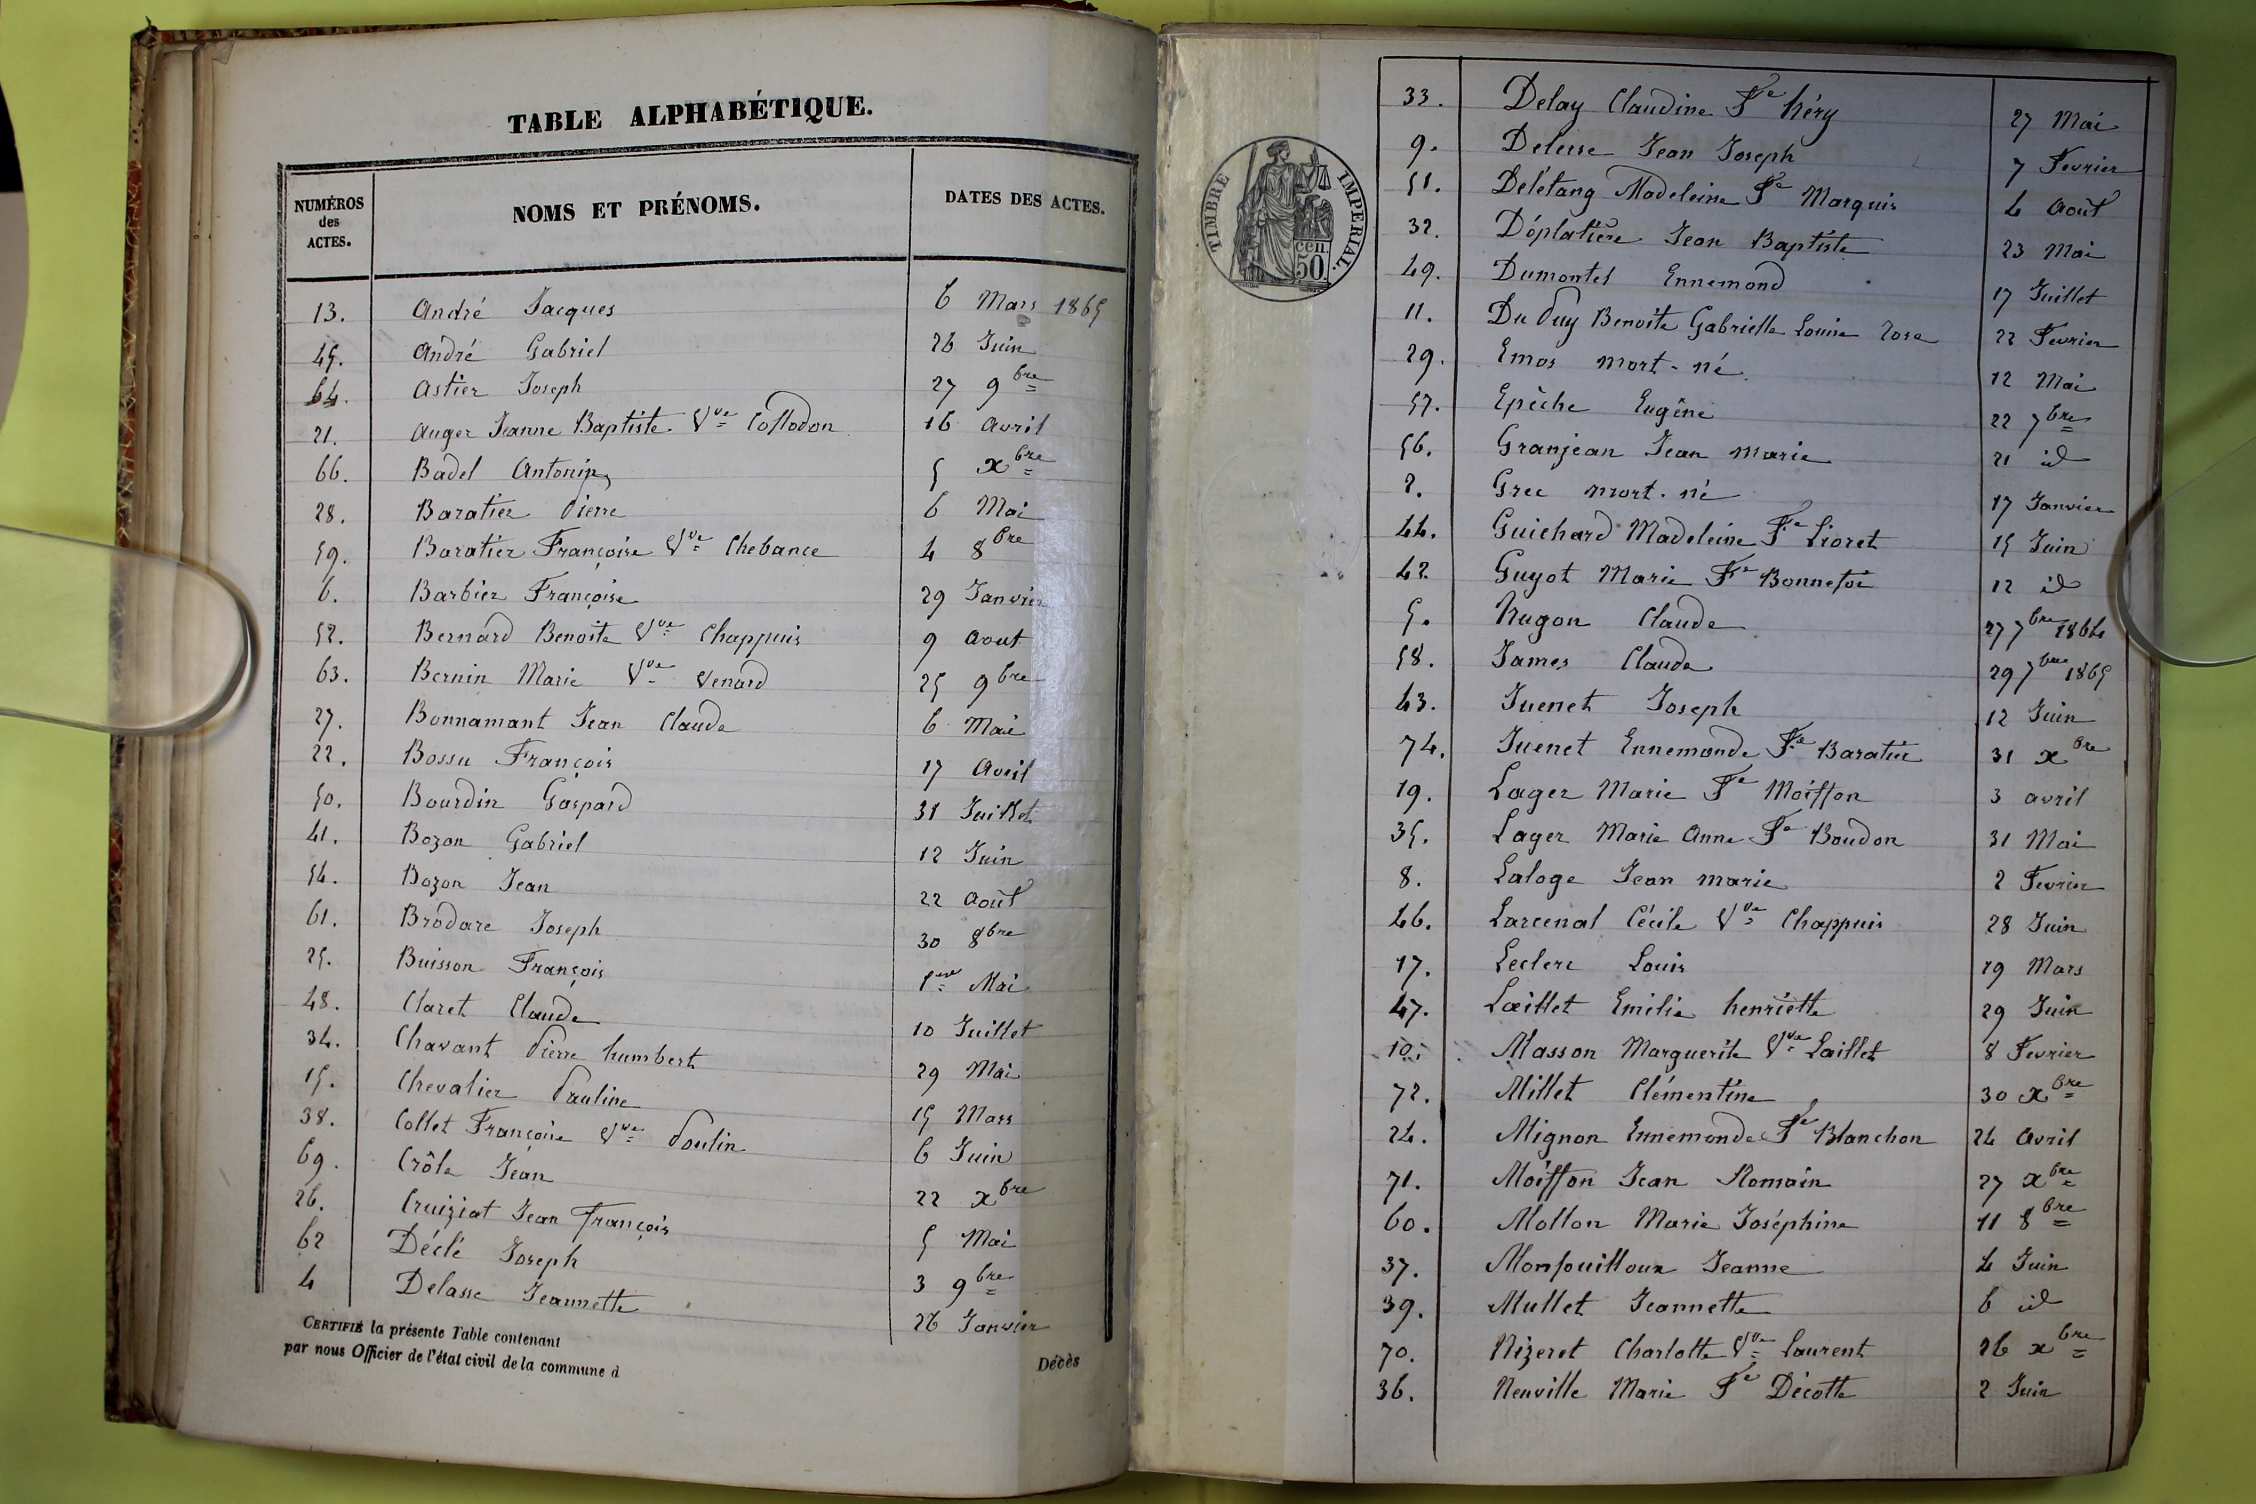 TABLE ALPHABÉTIQUE.
NUMÉROS des ACTES. NOMS ET PRÉNOMS. DATES DES ACTES.
13. André Jacques 6 Mars 1865
45. André Gabriel 26 Juin
64. Astier Joseph 27 9bre
21. Auger Jeanne Baptiste Vve Collodon 16 Avril
66. Badel Antonin 5 xbre
28. Baratier Pierre 6 Mai
59. Baratier Françoise Vve Chebance 4 8bre
6. Barbier Françoise 29 Janvier
52. Bernard Benoite Vve Chappuis 9 Aout
63. Bernin Marie Vve Venard 25 9bre
27. Bonnamant Jean Claude 6 Mai
22. Bossu François 17 Avril
50. Bourdin Gaspard 31 Juillet
41. Bozon Gabriel 12 Juin
54. Bozon Jean 22 Août
61. Brodare Joseph 30 8bre
25. Buisson François 1er Mai
48. Claret Claude 10 Juillet
34. Chavant Pierre humbert 29 Mai
15. Chevalier Pauline 15 Mars
38. Collet Françoise Vve Poulin 6 Juin
69. Crôle Jean 22 xbre
26. Cruiziat Jean François 5 Mai
62 Déclé Joseph 3 9bre
4 Delasse Jeannette 26 Janvier
CERTIFIÉ la présente Table contenant Décès
par nous Officier de l'état civil de la commune d
TIMBRE IMPERIAL.
50 cen.
33. Delay Claudine Fe héry 27 Mai
9. Deleuse Jean Joseph 7 Fevrier
51. Delétang Madeleine Fe Marquis 4 Août
32. Déplatière Jean Baptiste 23 Mai
49. Dumontet Ennemond 17 Juillet
11. Du Puy Benoite Gabrielle Louise Rose 22 Fevrier
29. Emos mort-né 12 Mai
57. Epèche Eugène 22 7bre
56. Granjean Jean Marie 21 id
2. Grec mort-né 17 Janvier
44. Guichard Madeleine Fe Lioret 15 Juin
42 Guyot Marie Fe Bonnefoi 12 id
5. hugon Claude 27 7bre 1864
58. James Claude 29 7bre 1865
43. Juenet Joseph 12 Juin
74. Juenet Ennemonde Fe Baratier 31 xbre
19. Lager Marie Fe Moiffon 3 avril
35. Lager Marie Anne Fe Boudon 31 Mai
8. Laloge Jean Marie 2 Fevrier
46. Larcenal Cécile Vve Chappuis 28 Juin
17. Leclerc Louis 29 Mars
47. Lœillet Emilie henriette 29 Juin
10. Masson Marguerite Vve Laillet 8 Fevrier
72. Millet Clémentine 30 xbre
24. Mignon Ennemonde Fe Blanchon 24 Avril
71. Moiffon Jean Romain 27 xbre
60. Mollon Marie Joséphine 11 8bre
37. Monfouilloux Jeanne 4 Juin
39. Mullet Jeannette 6 id
70. Nizeret Charlotte Vve Laurent 26 xbre
36. Neuville Marie Fe Décotte 2 Juin